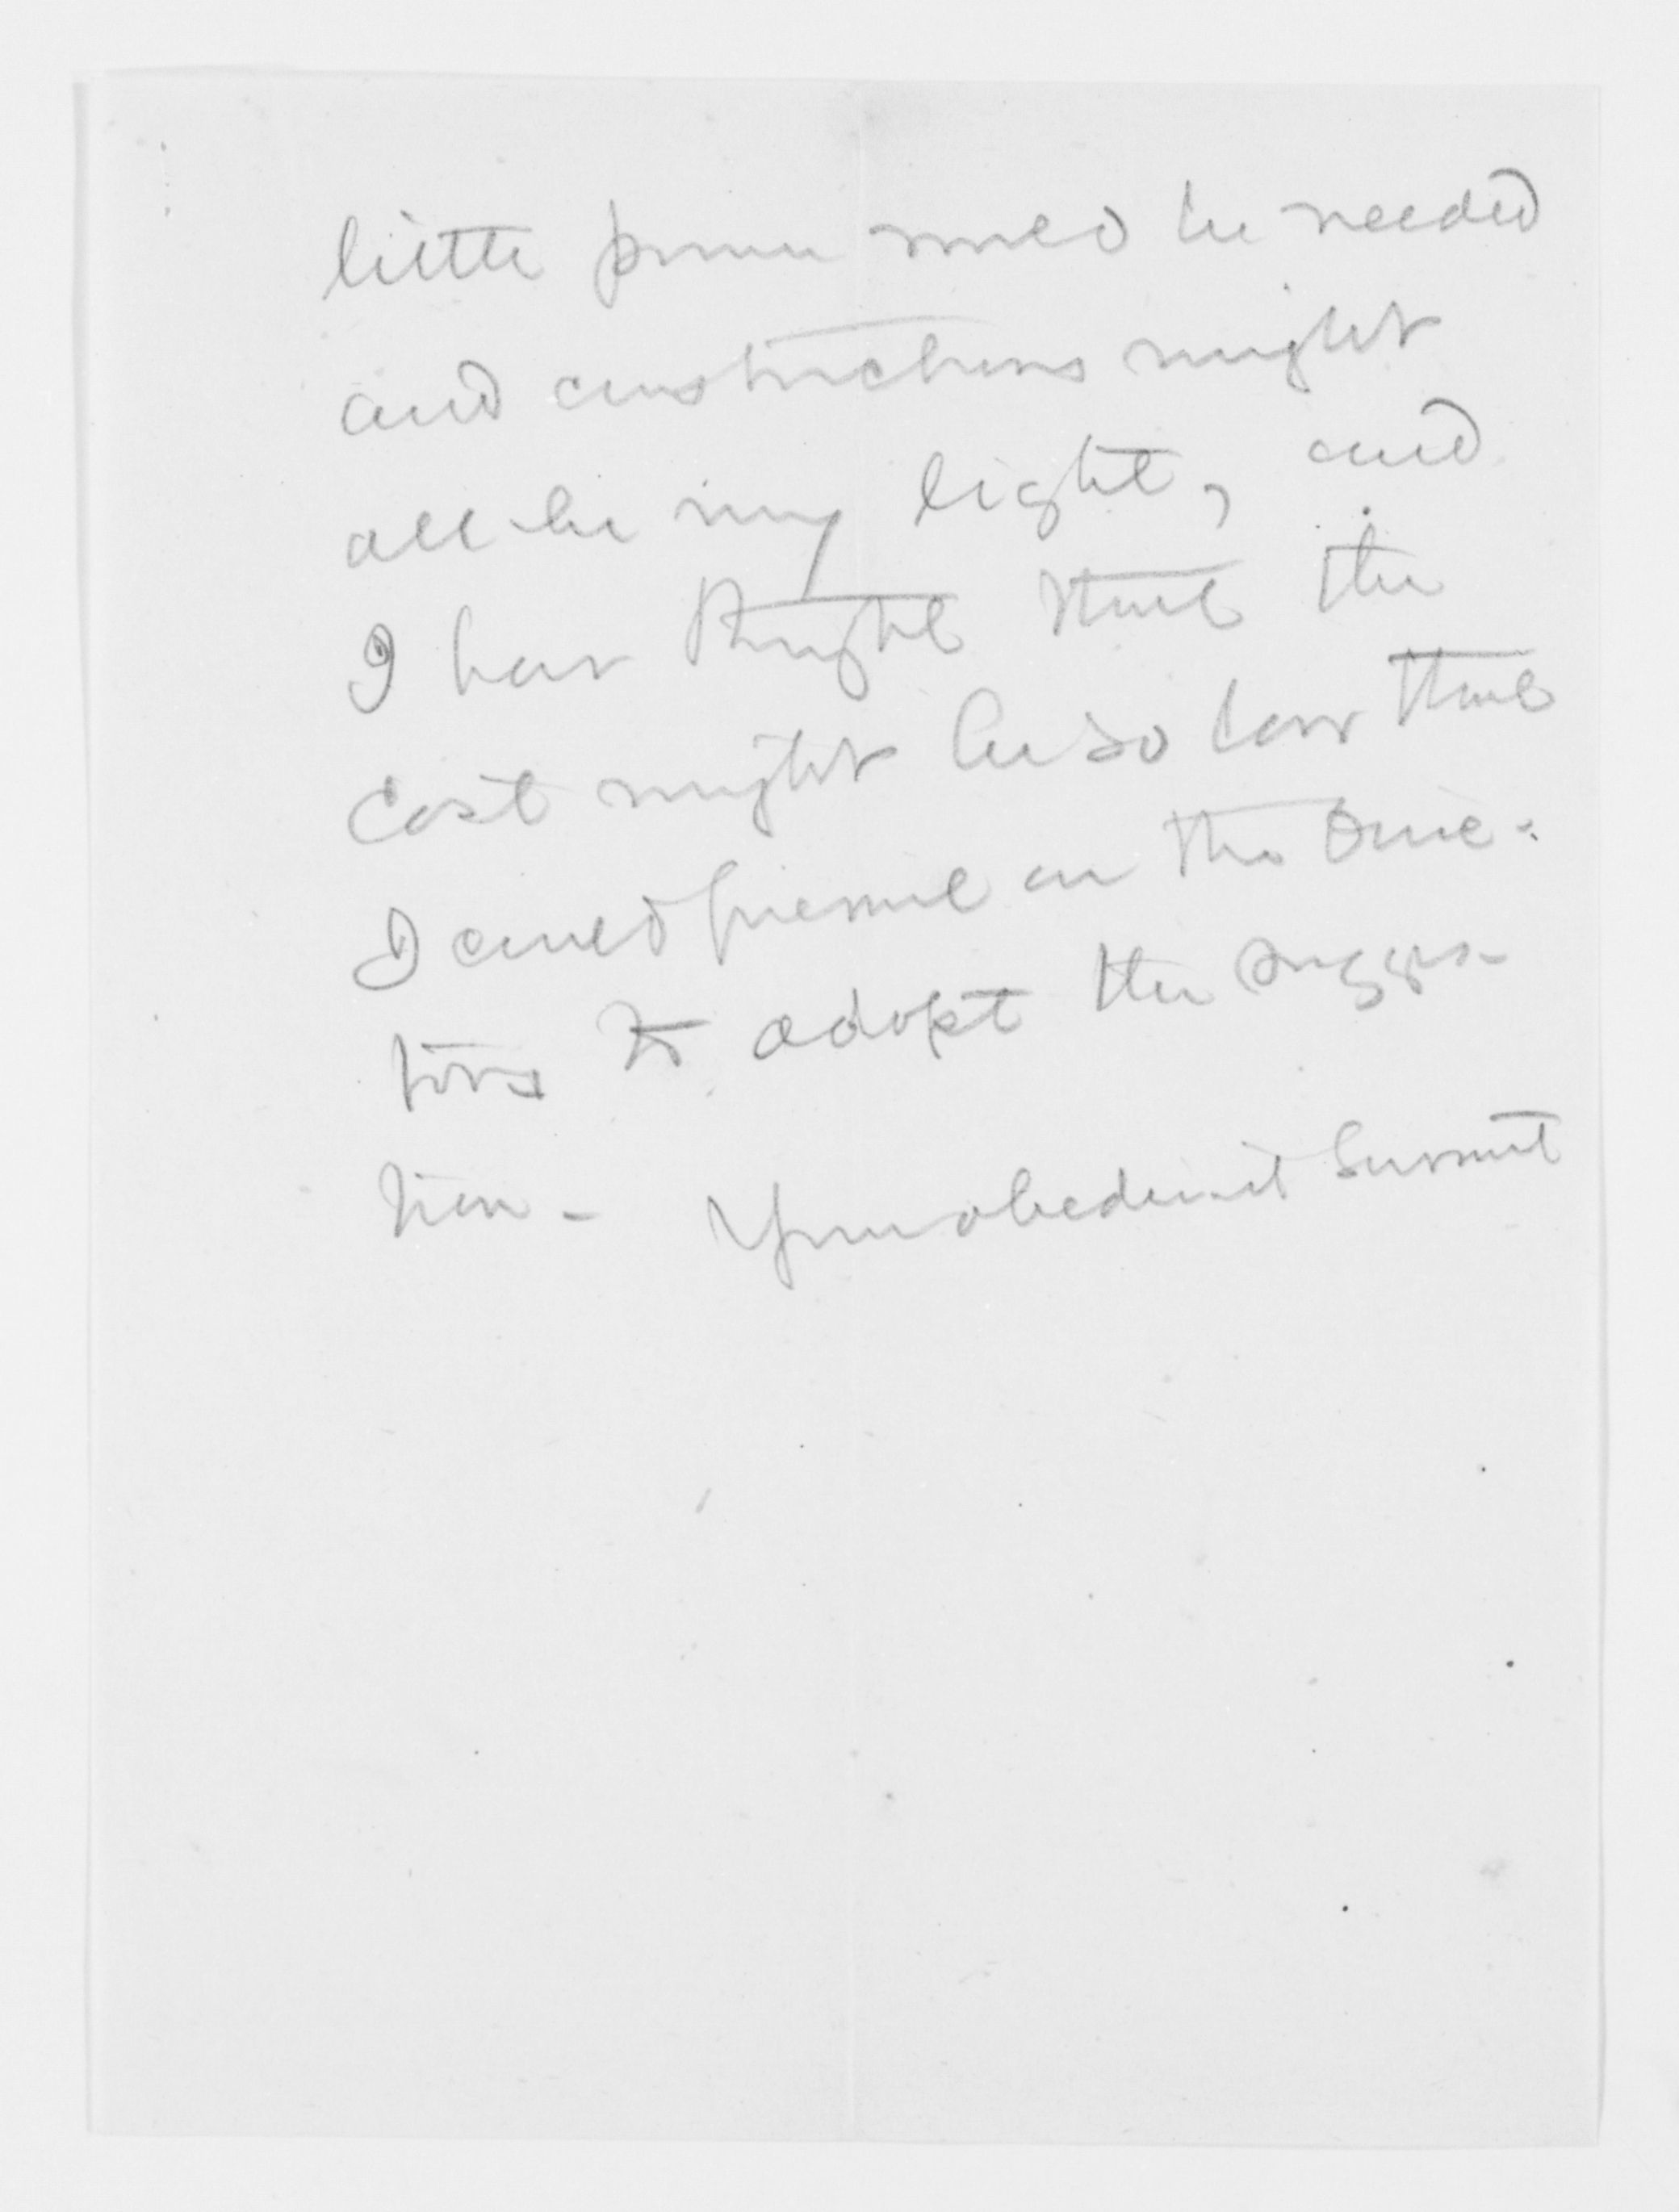 little power would be needed
and constructions might
all be very light, and
I have thought that the
cost might be so low that
I could prevail on the Direc-
tors to adopt the sugges-
tion - Your obedient servant